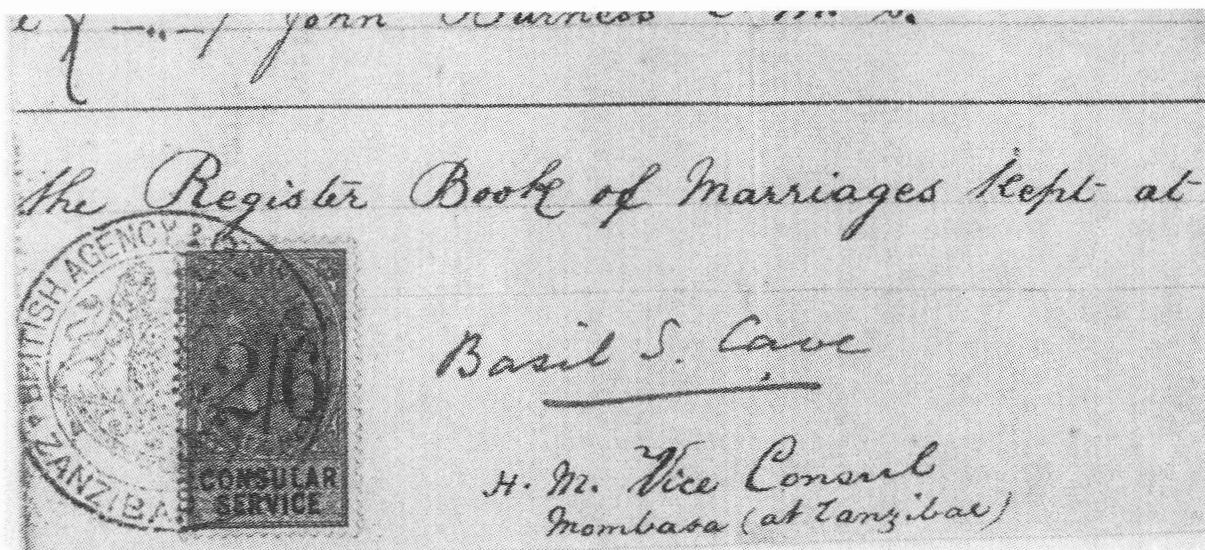 John Burness C. M. S.
the Register Book of Marriages kept at
BRITISH AGENCY &
ZANZIBAR
2/6
CONSULAR
SERVICE
Basil S. Cave
H. M. Vice Consul
Mombasa (at Zanzibar)